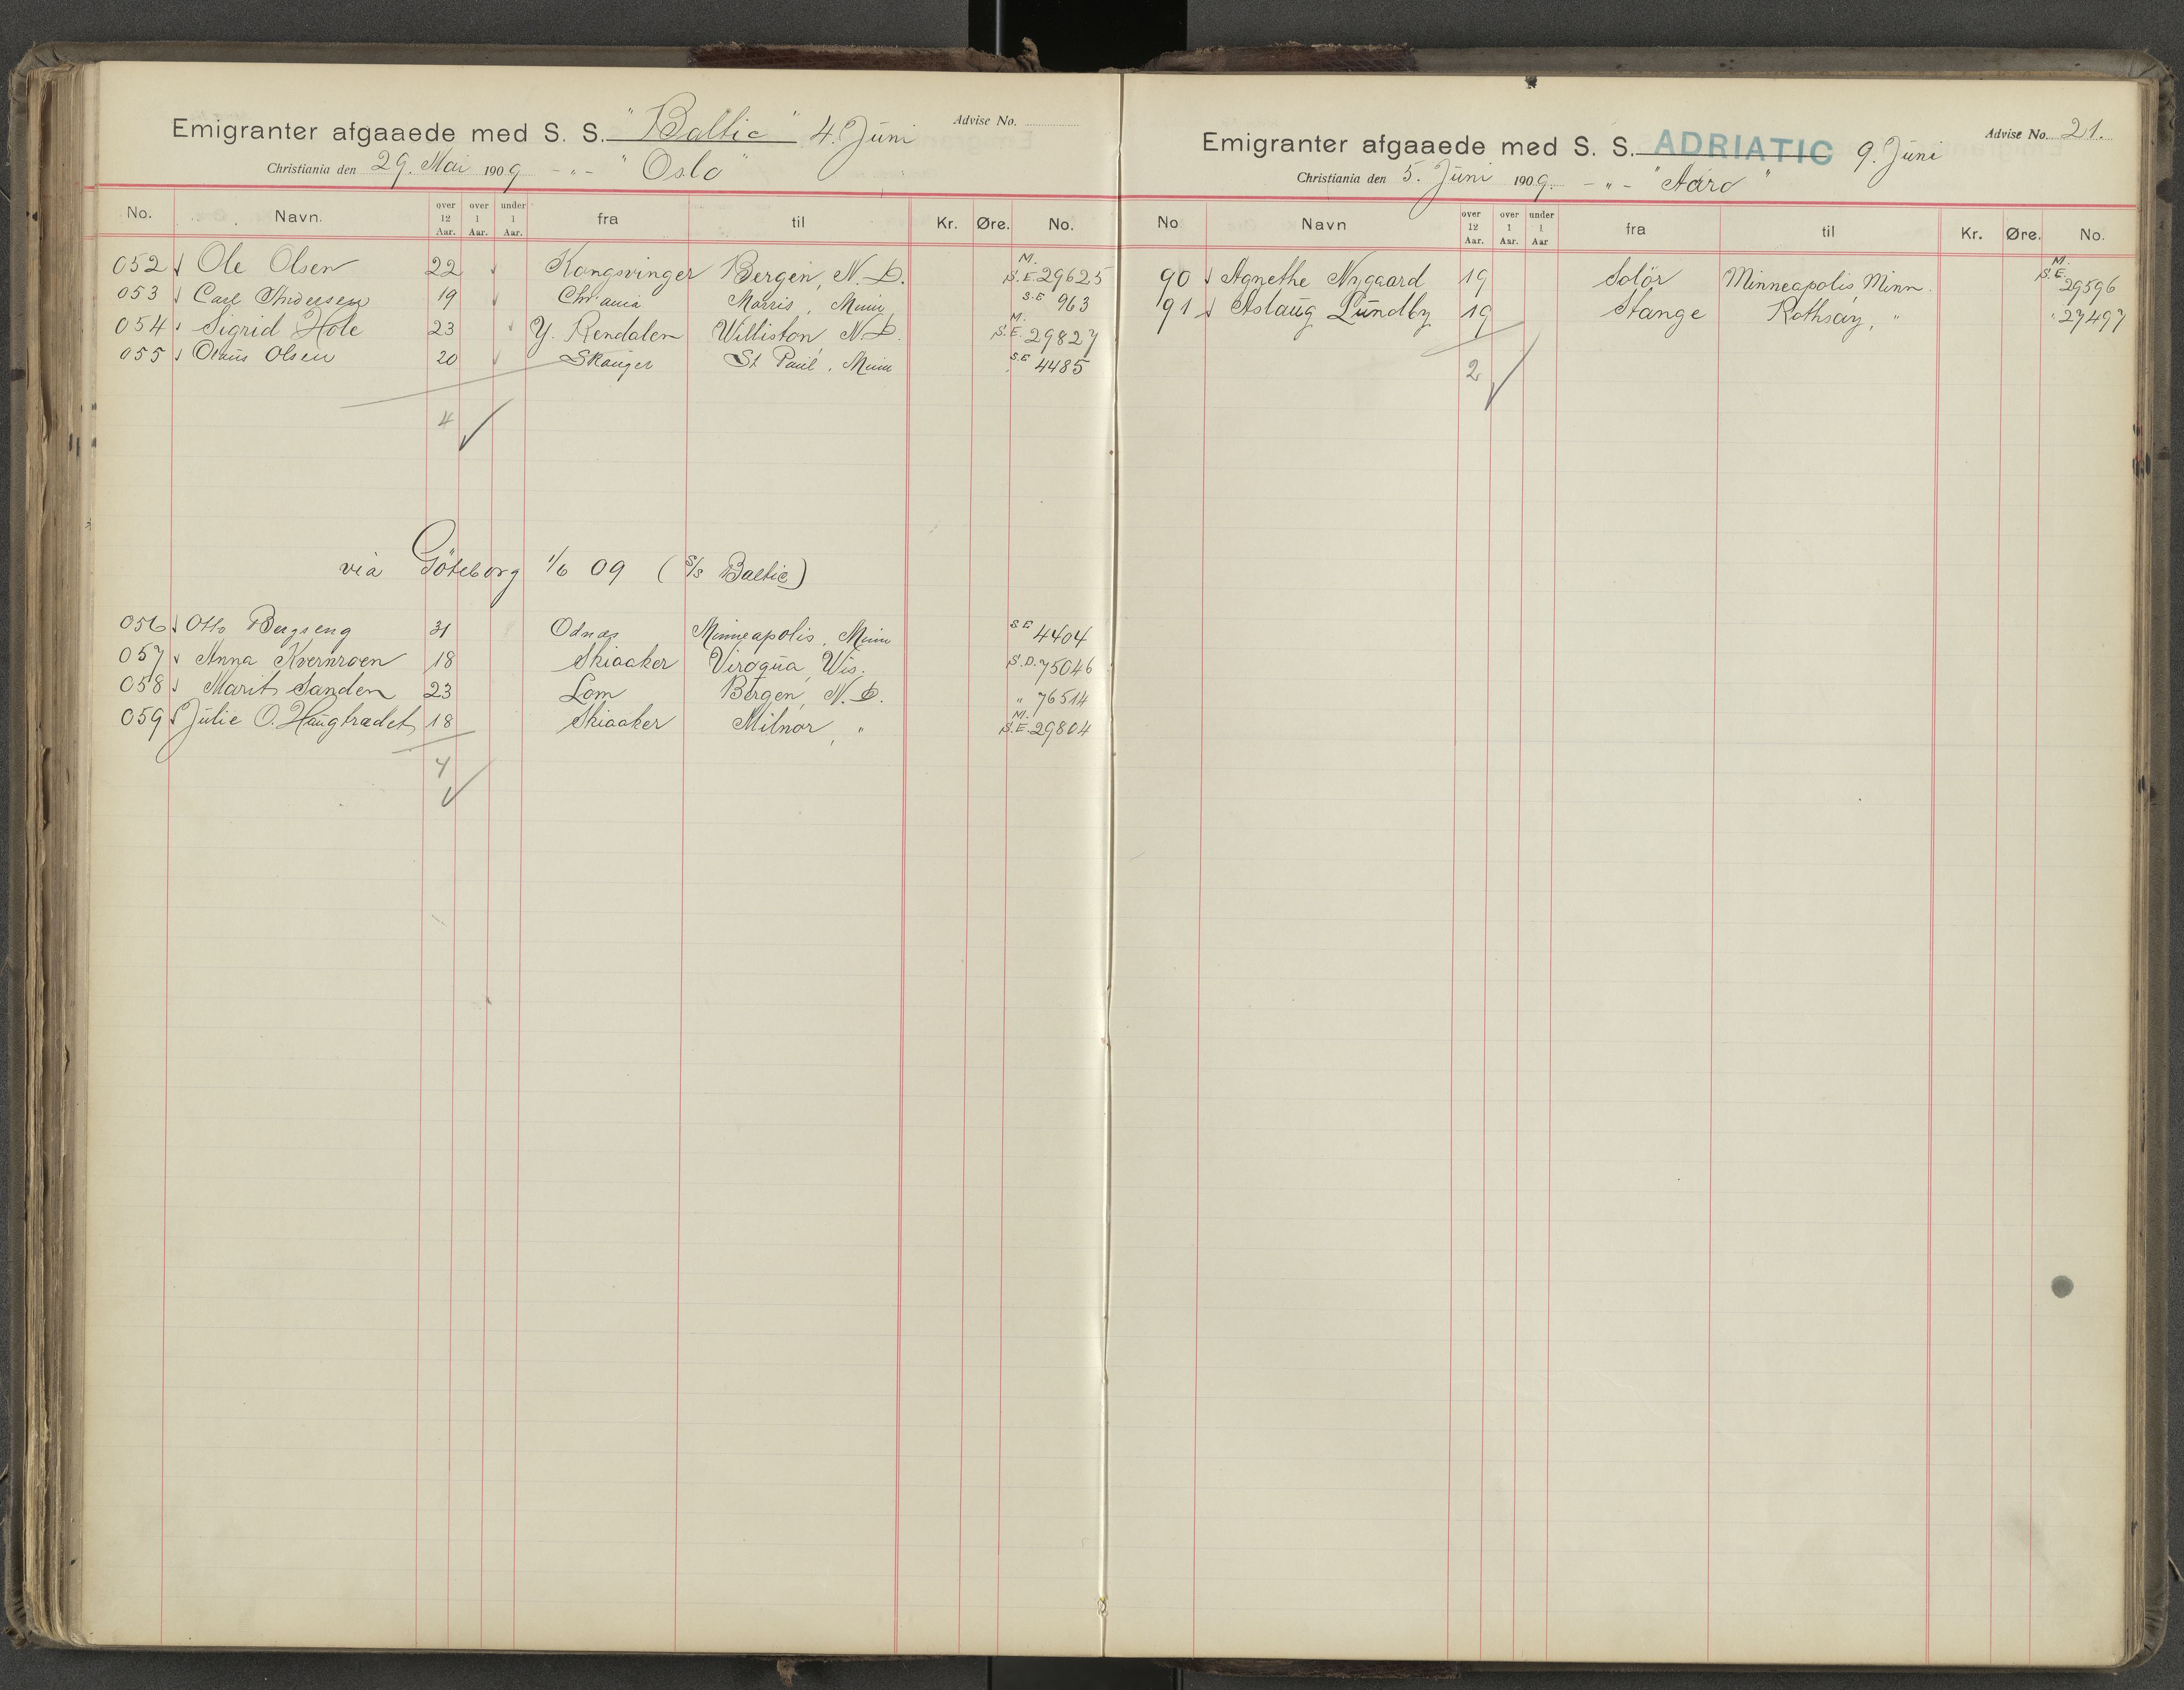 Emigranter afgaaede med S. S. "Baltic" 4. Juni Advise No.
Christiania den 29. Mai 1909 - " - "Oslo"
No. Navn. over 12 Aar. over 1 Aar. under 1 Aar. fra til Kr. Øre. No.
052 Ole Olsen 22 Kongsvinger Bergen, N. D. M. S.E. 29625
053 Carl Andersen 19 Chr'ania Morris, Minn S.E 963
054 Sigrid Hole 23 Y. Rendalen Williston, N D. M. S.E. 29827
055 Olaus Olsen 20 Skauger St Paul, Minn S.E 4485
4
via Göteborg 1/6 09 (S/S Baltic)
056 Otto Bergseng 31 Odnæs Minneapolis, Minn S E 4404
057 Anna Kvernroen 18 Skiaaker Viroqua, Wis. S.D. 75046
058 Marit Sanden 23 Lom Bergen, N. D. " 76514
059 Julie O. Haugbrædet 18 Skiaaker Milnor, " M. S.E. 29804
4
Emigranter afgaaede med S. S. ADRIATIC 9. Juni Advise No. 21.
Christiania den 5. Juni 1909. - " - "Aaro"
No Navn over 12 Aar. over 1 Aar. under 1 Aar fra til Kr. Øre. No.
90 Agnethe Nygaard 19 Solör Minneapolis, Minn. M. S.E. 29596
91 Aslaug Lundby 19 Stange Rothsay, " " 27497
2